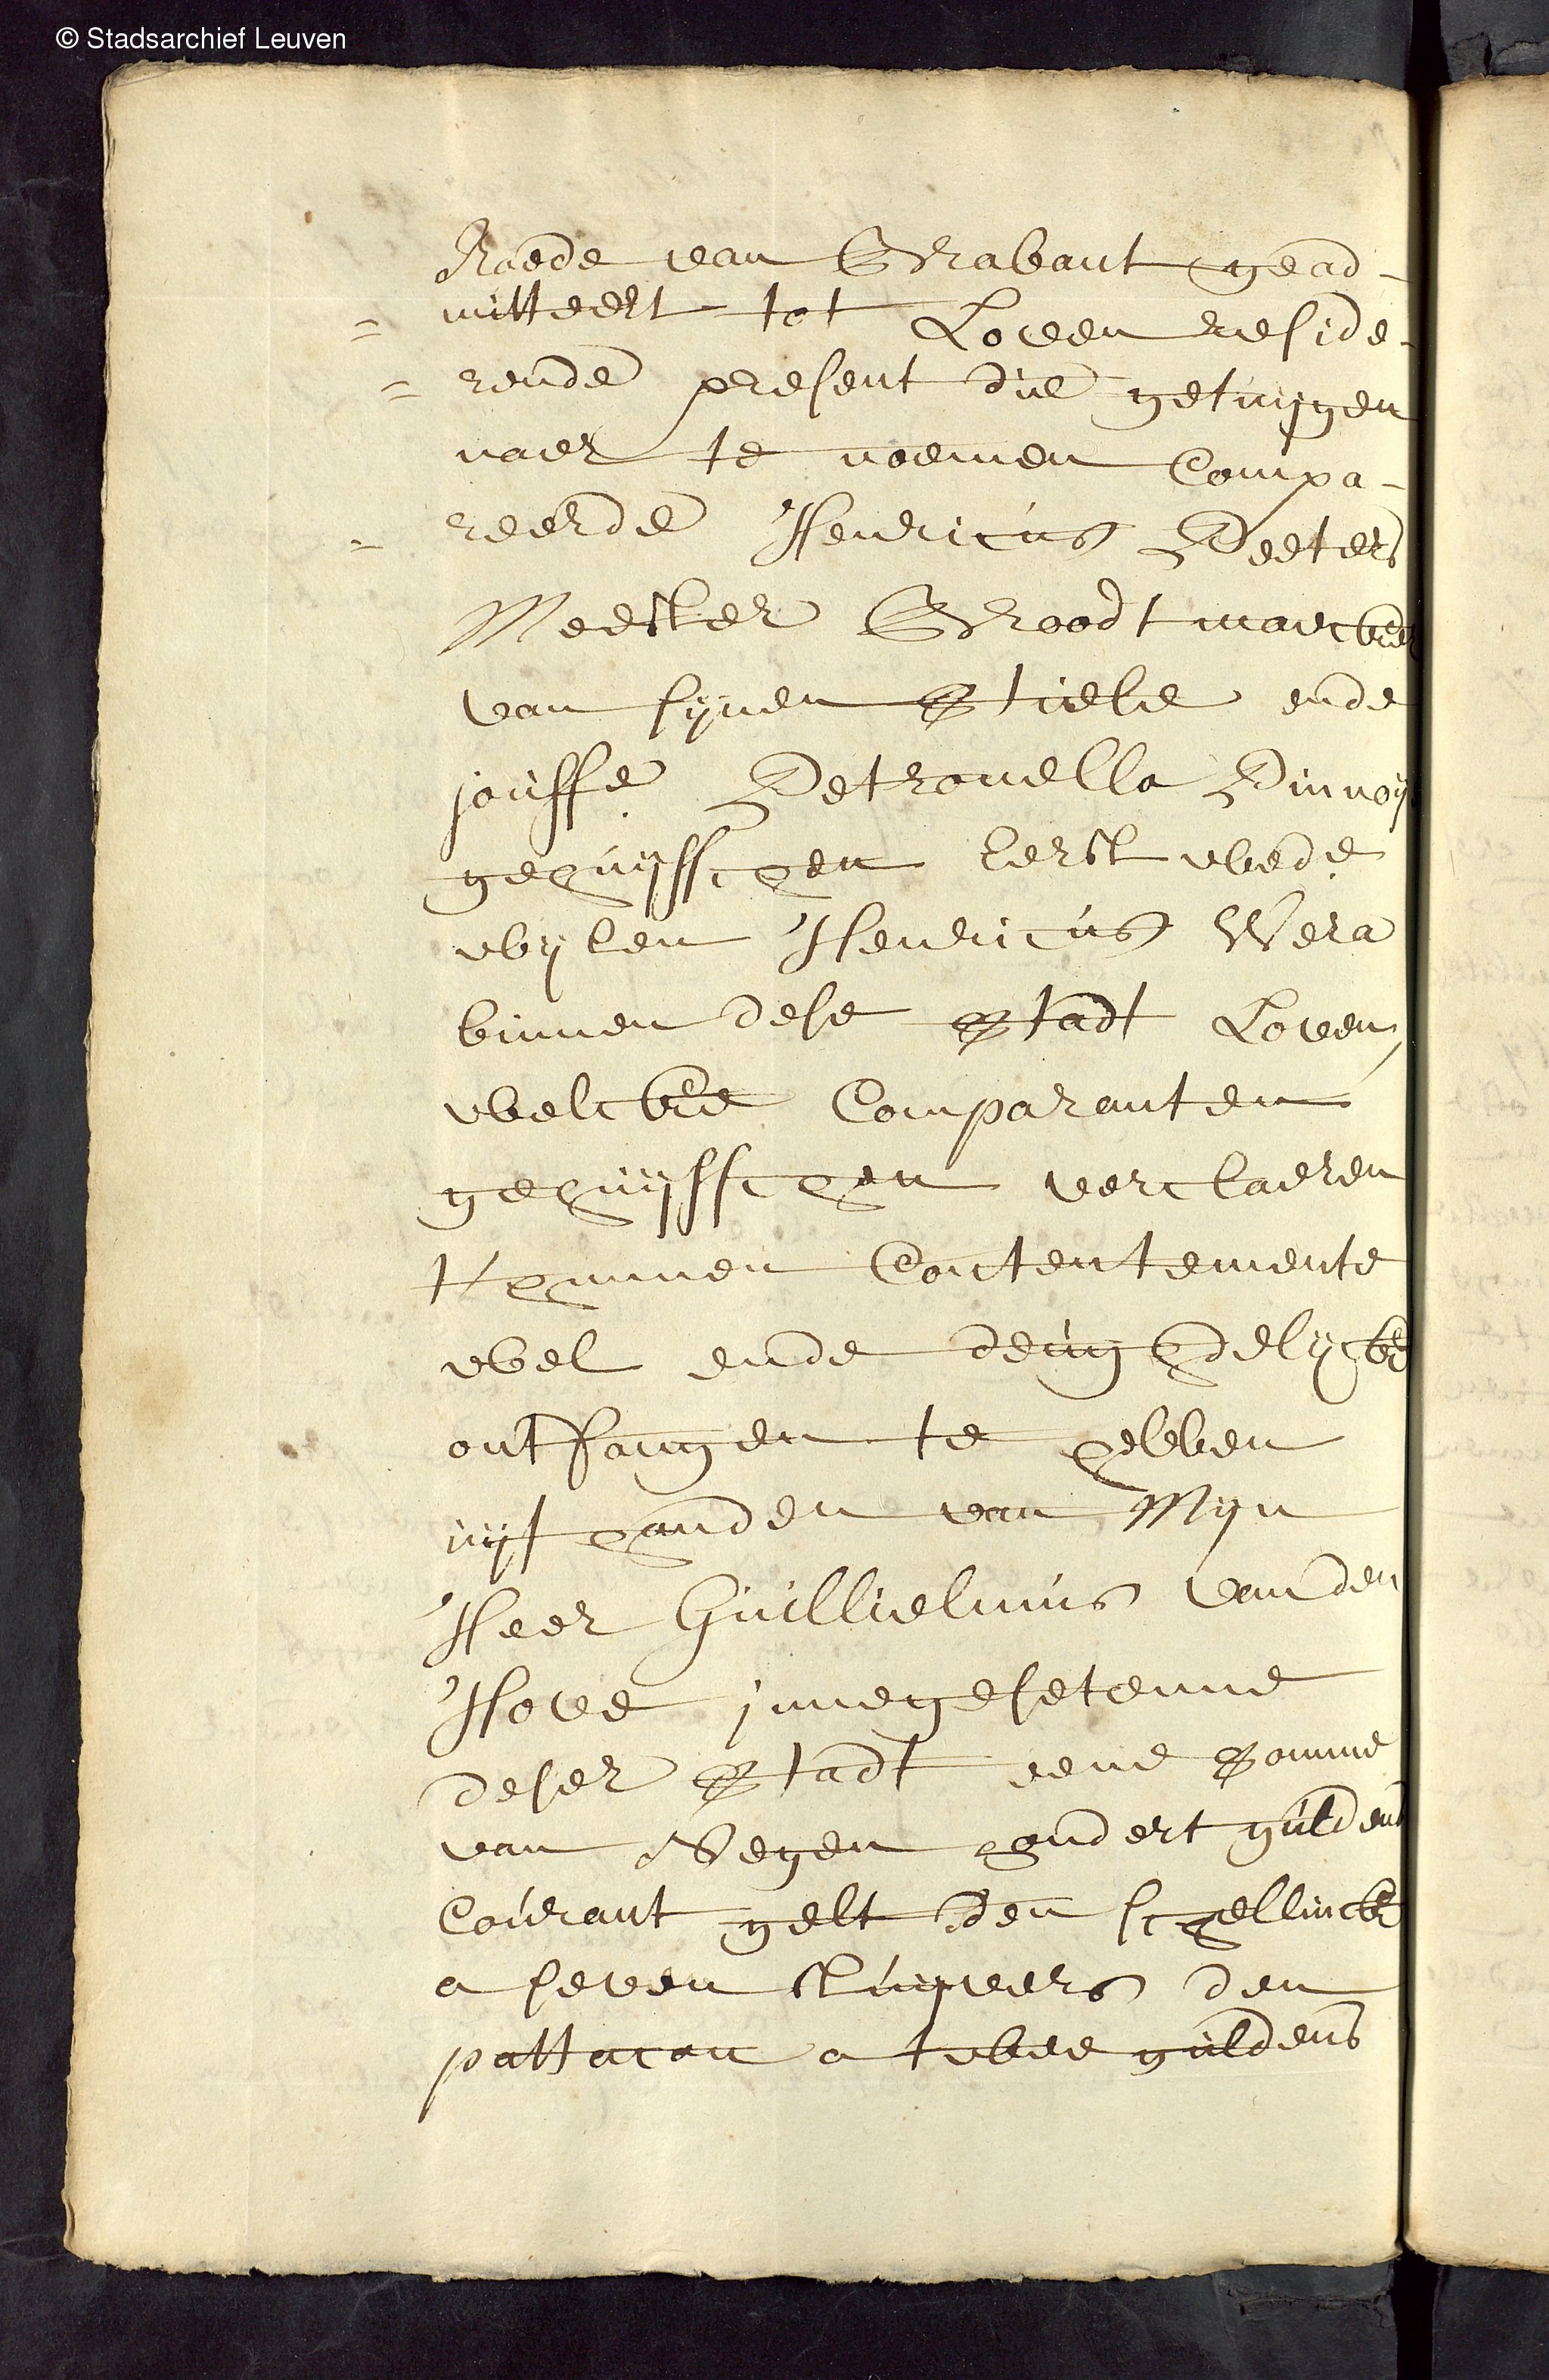 © Stadsarchief Leuven
Raede van Brabant gead-
= mitteert tot Loven reside-
= rende present die getuijgen
naer te noemen Compa-
= reerde Henricus Peeters
Meester Broodtmaecker
van synen stiele ende
jouffe Petronella Pinnoij
gehuijsschen lerst wede
wylen Henricus Wera
binnen dese stadt Loven,
welcke Comparanten
gehuijsschen verclaeren
t'hunnen Contentemente
wel ende deughdelycke
ontfangen te hebben
uijt handen van Myn
Heer Guillielmus vanden
Hove innegesetenne
deser stadt eene somme
van Negen hondert guldens
Courant gelt den schellinck
a seven stuyvers den
pattacon a twee guldens